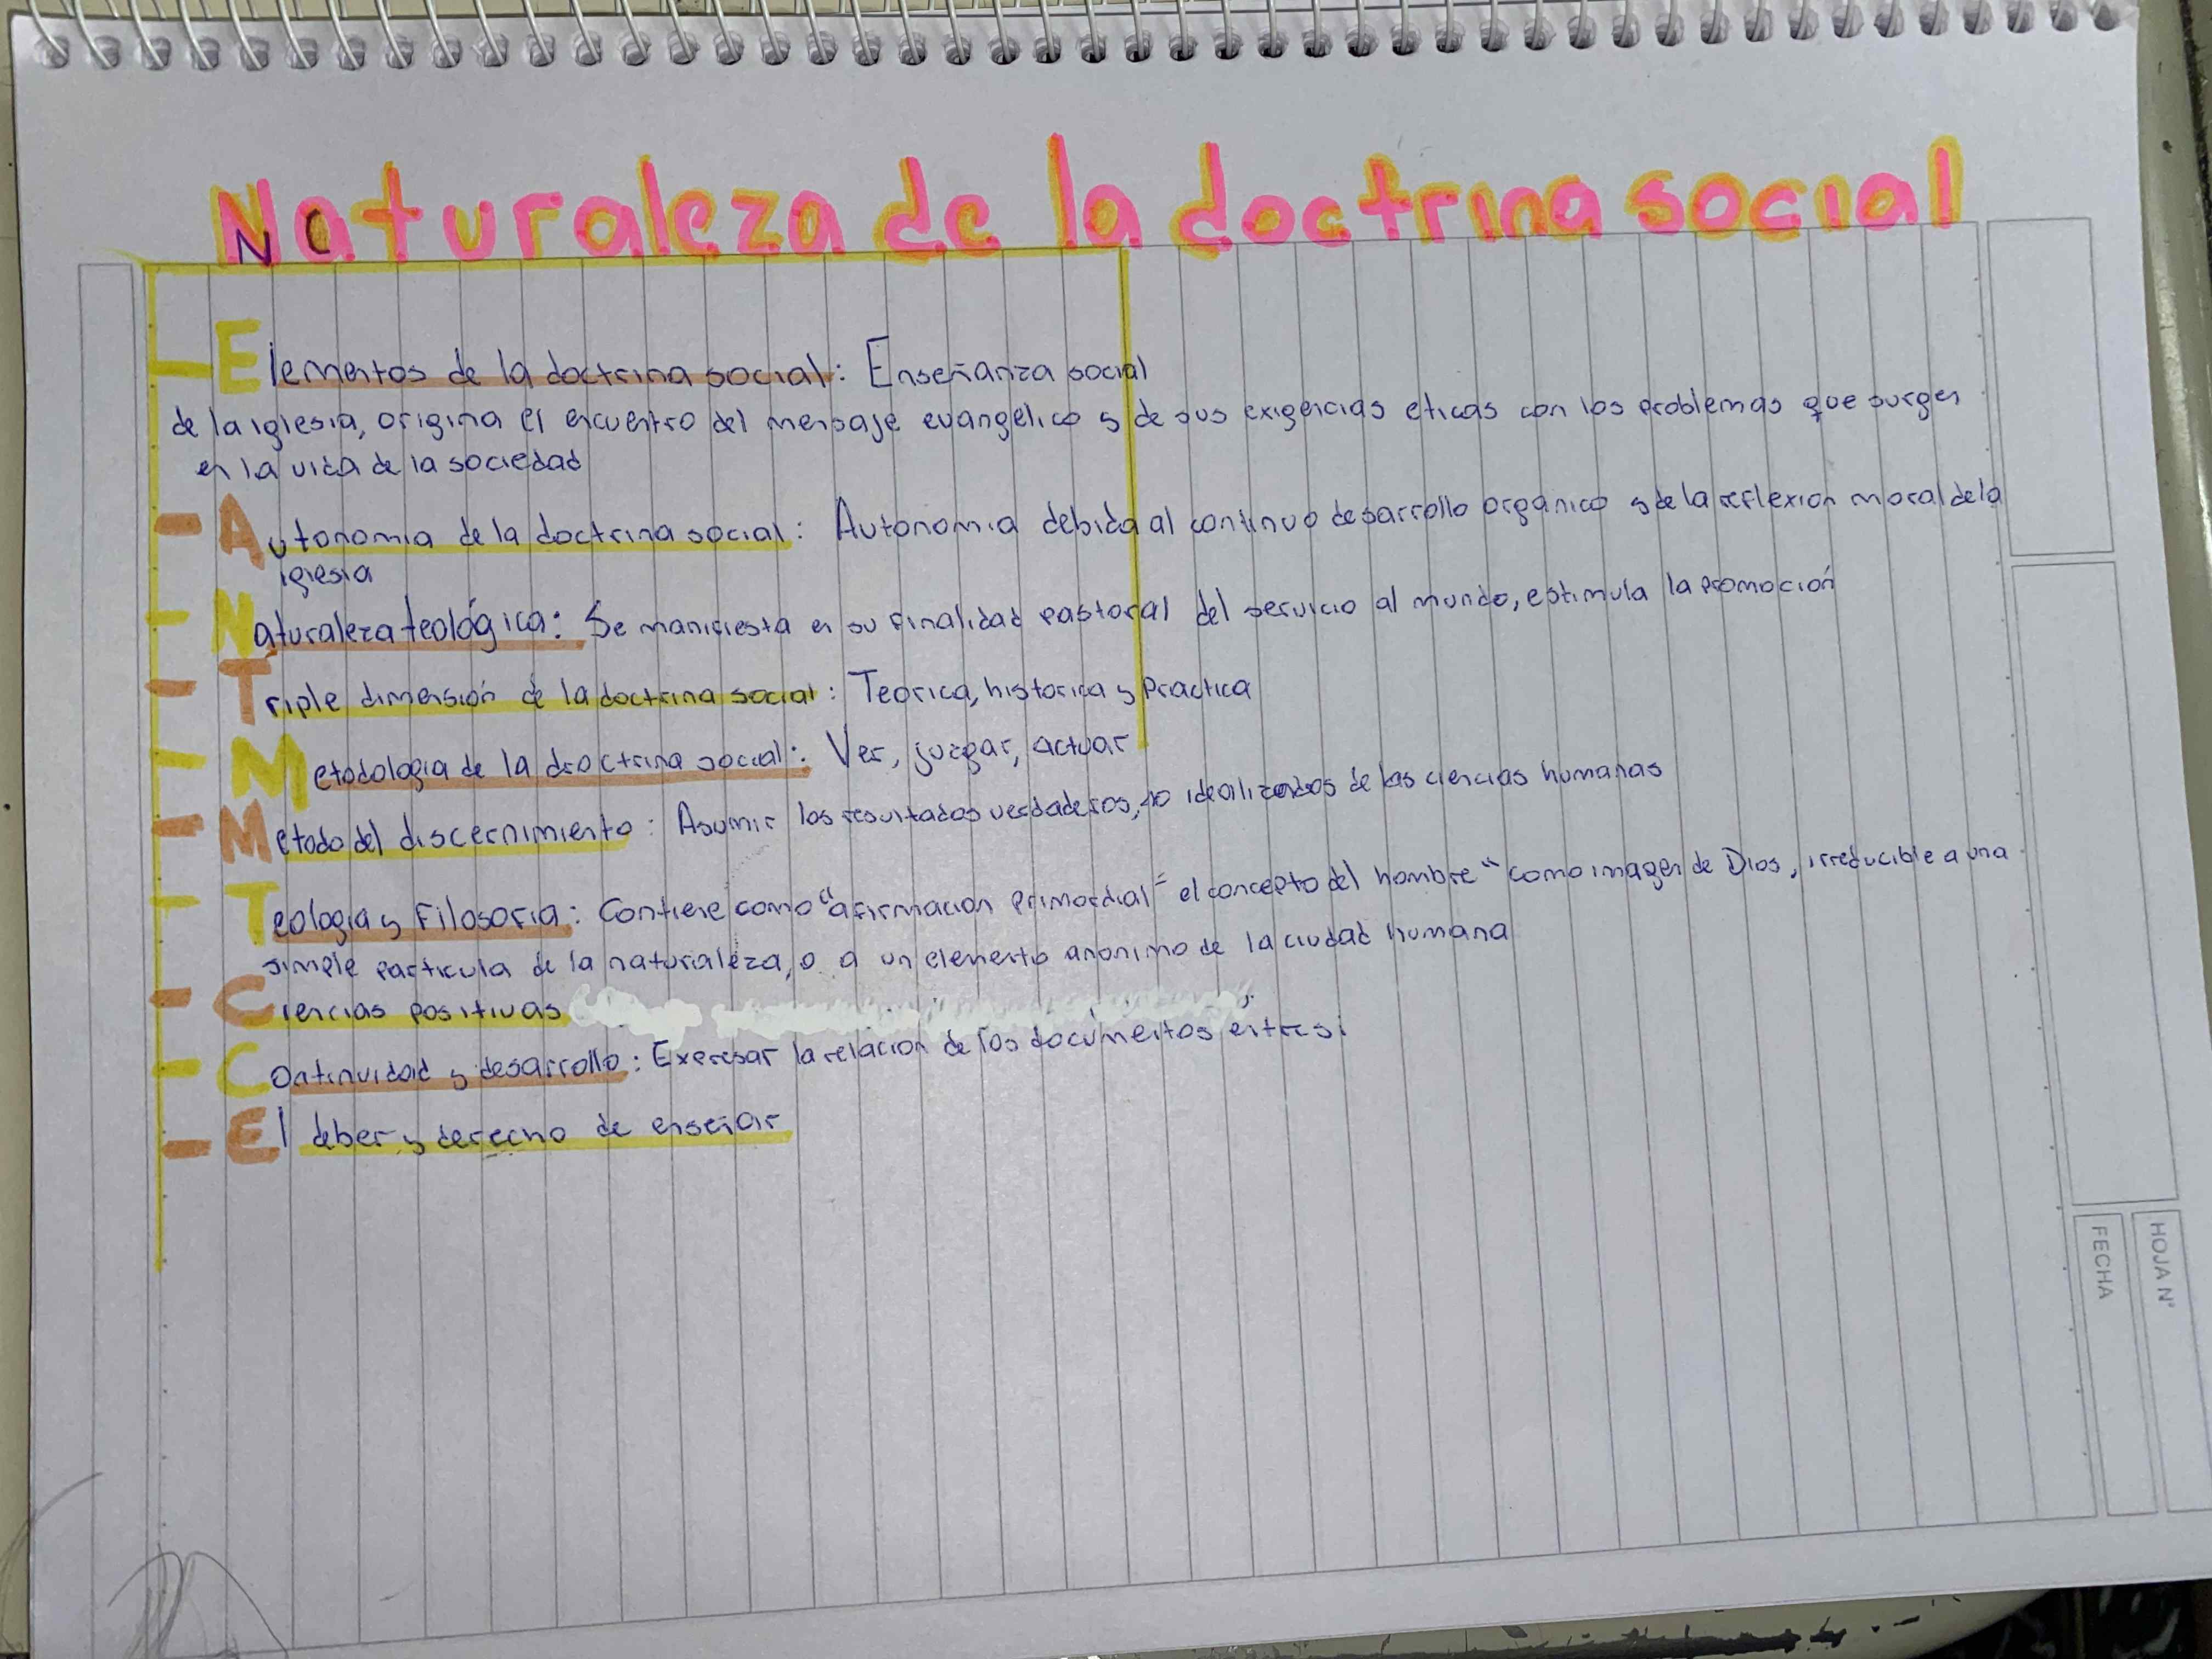 Naturaleza de la doctrina social
Elementos de la doctrina social: Enseñanza social
de la iglesia, origina el encuentro del mensaje evangélico y de sus exigencias eticas con los problemas que surgen
en la vida de la sociedad
Autonomia de la doctrina social: Autonomia debida al continuo desarrollo organico y de la reflexion moral de la
iglesia
Naturaleza teológica: Se manifiesta en su finalidad pastoral del servicio al mundo, estimula la promoción
Triple dimensión de la doctrina social: Teorica, historica y Practica
Metodologia de la droctrina social: Ver, juzgar, actuar
Metodo del discernimiento: Asumir los resultados verdaderos, no idealizados de las ciencias humanas
Teologia y Filosofia: Contiene como "afirmacion primordial" el concepto del hombre "como imagen de Dios, irreducible a una
simple particula de la naturaleza, o a un elemento anonimo de la ciudad humana
Ciencias positivas
Continuidad y desarrollo: Expresar la relacion de los documentos entre si
El deber y derecho de enseñar
HOJA N°
FECHA